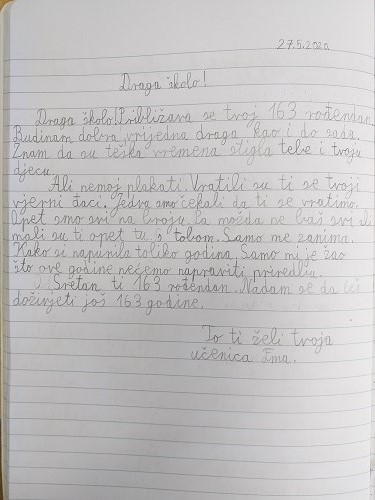 27.5.2020
Draga školo!
Draga školo! Približava se tvoj 163 rođendan.
Budi nam dobra, vrijedna draga kao i do sada.
Znam da su teška vremena stigla tebe i tvoju
djecu.
Ali nemoj plakati. Vratili su ti se tvoji
vjerni đaci. Jedva smo čekali da ti se vratimo.
Opet smo svi na broju. Pa možda ne baš svi ali
mali su ti opet tu s tobom. Samo me zanima.
Kako si napunila toliko godina. Samo mi je žao
što ove godine nećemo napraviti priredbu.
Sretan ti 163 rođendan. Nadam se da ćeš
doživjeti još 163 godine.
To ti želi tvoja
učenica Ema.